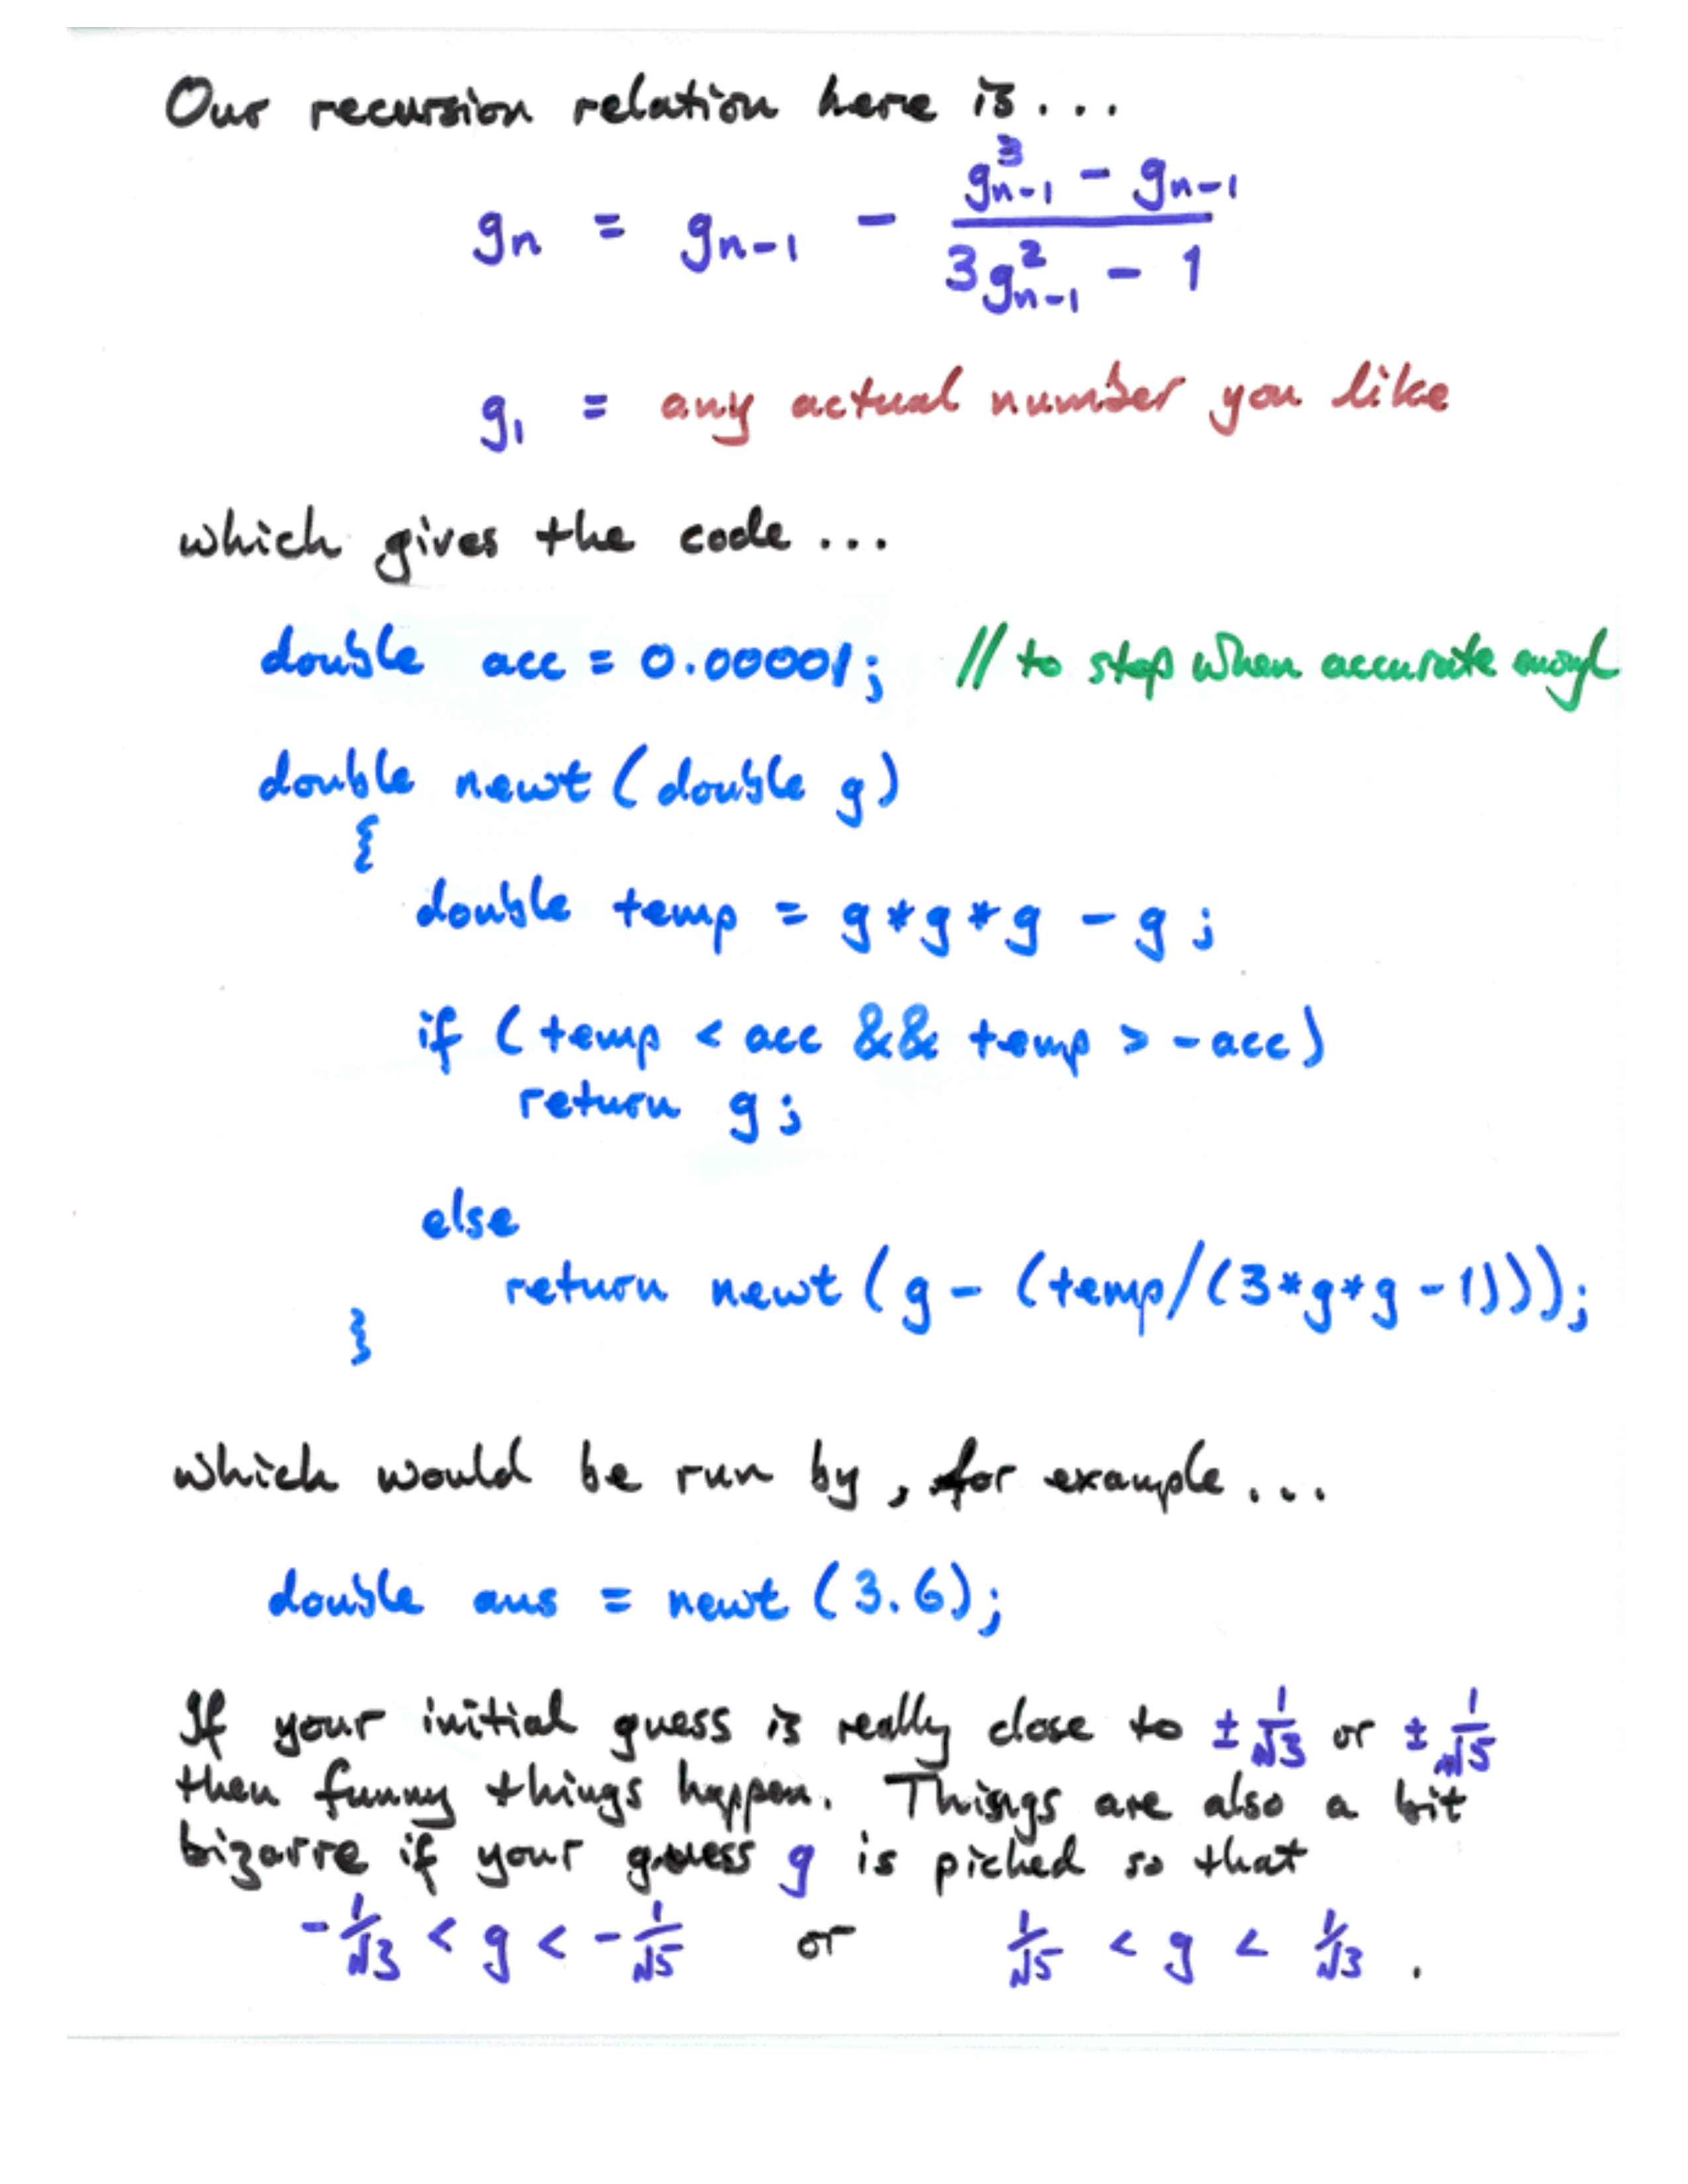 Our recursion relation here is...
gₙ = gₙ₋₁ - (g³ₙ₋₁ - gₙ₋₁) / (3g²ₙ₋₁ - 1)
g₁ = any actual number you like
which gives the code ...
double acc = 0.00001; // to stop when accurate enough
double newt (double g)
{
double temp = g*g*g - g;
if (temp < acc && temp > -acc)
return g;
else
return newt (g - (temp/(3*g*g-1)));
}
which would be run by, for example...
double ans = newt (3.6);
If your initial guess is really close to ± 1/√3 or ± 1/√5
then funny things happen. Things are also a bit
bizarre if your guess g is picked so that
-1/√3 < g < -1/√5 or 1/√5 < g < 1/√3 .